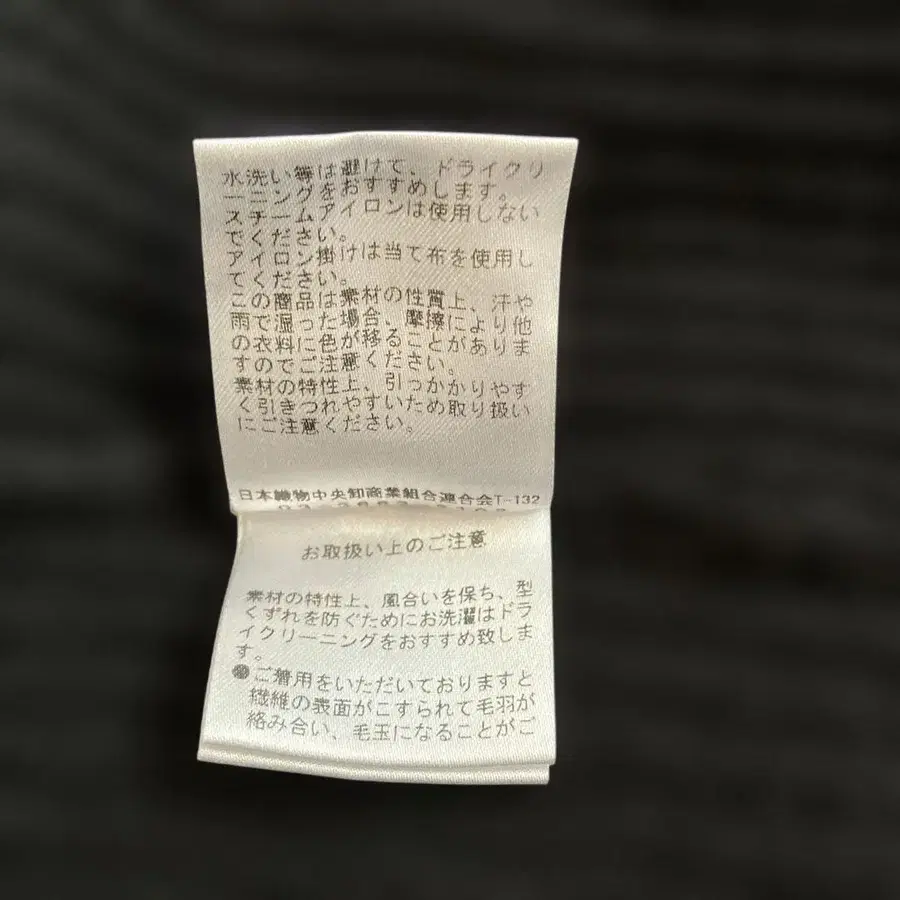 水洗い等は避けて、ドライクリ
ーニングをおすすめします。
スチームアイロンは使用しない
でください。
アイロン掛けは当て布を使用し
てください。
この商品は素材の性質上、汗や
雨で湿った場合、摩擦により他
の衣料に色が移ることがありま
すのでご注意ください。
素材の特性上、引っかかりやす
く引きつれやすいため取り扱い
にご注意ください。
日本織物中央卸商業組合連合会T-132
お取扱い上のご注意
素材の特性上、風合いを保ち、型
くずれを防ぐためにお洗濯はドラ
イクリーニングをおすすめ致しま
す。
●ご着用をいただいておりますと
繊維の表面がこすられて毛羽が
絡み合い、毛玉になることがご